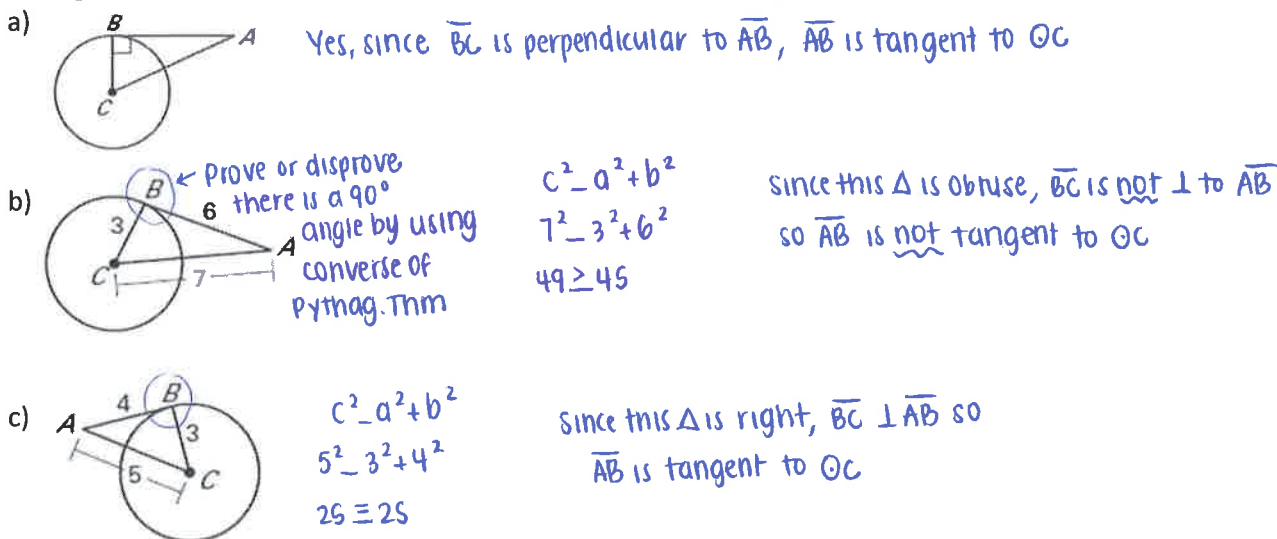 a)
B
A
C
Yes, since B̅C̅ is perpendicular to A̅B̅, A̅B̅ is tangent to ⊙C
b)
B
3
6
A
C
7
← Prove or disprove
there is a 90°
angle by using
converse of
Pythag. Thm
c² _ a² + b²
7² _ 3² + 6²
49 > 45
since this Δ is obtuse, B̅C̅ is not ⊥ to A̅B̅
so A̅B̅ is not tangent to ⊙C
c)
4
B
A
3
5
C
c² _ a² + b²
5² _ 3² + 4²
25 = 25
Since this Δ is right, B̅C̅ ⊥ A̅B̅ so
A̅B̅ is tangent to ⊙C